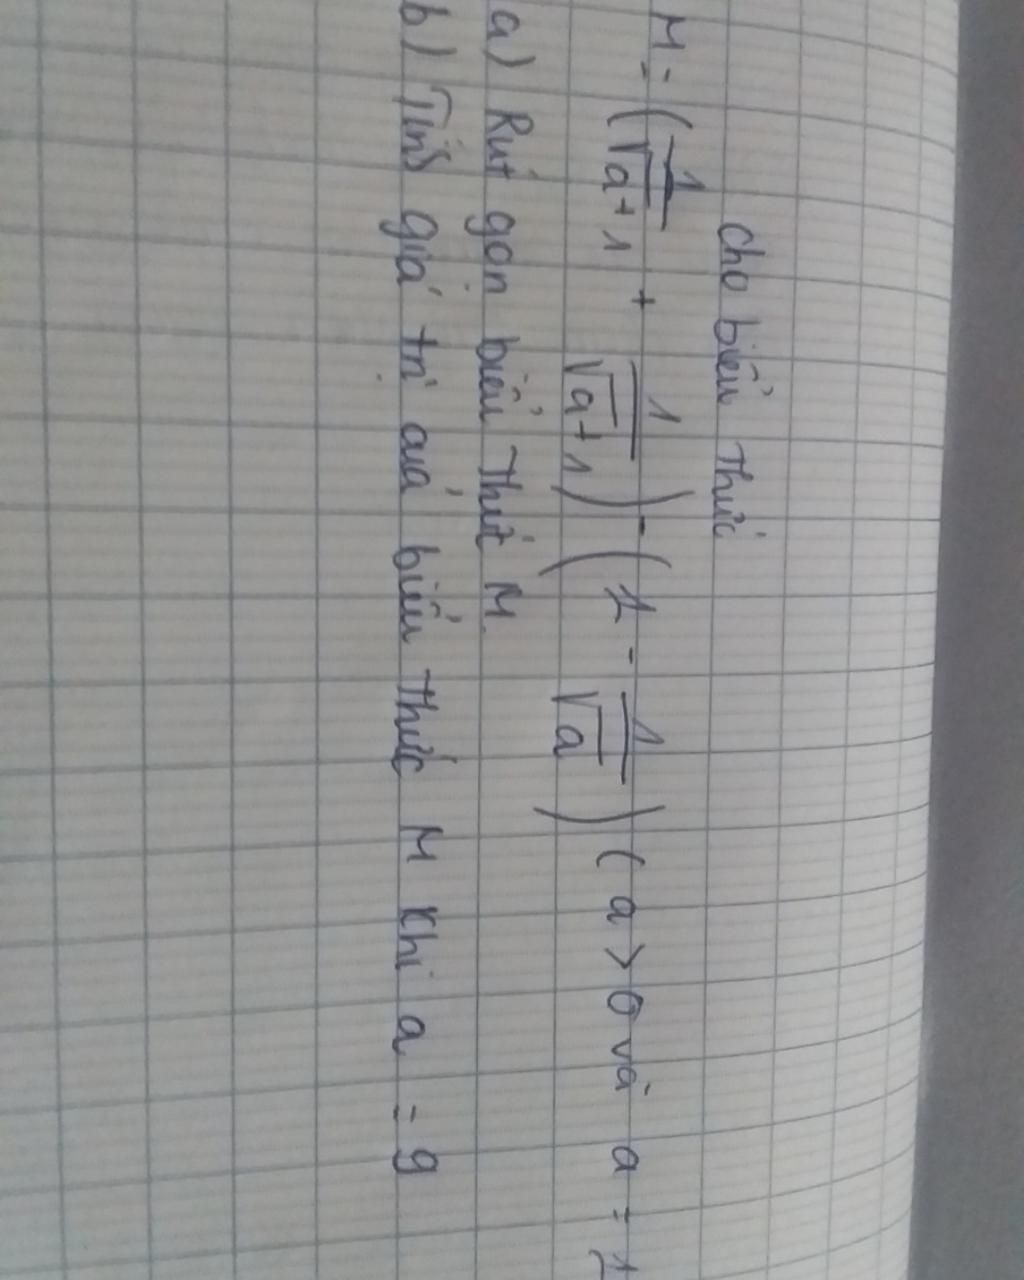 Cho biểu thức
M = (1/(√a+1) + 1/(√a+1)) - (1 - 1/√a) (a > 0 và a = 1
a) Rút gọn biểu thức M.
b) Tính giá trị của biểu thức M khi a = 9